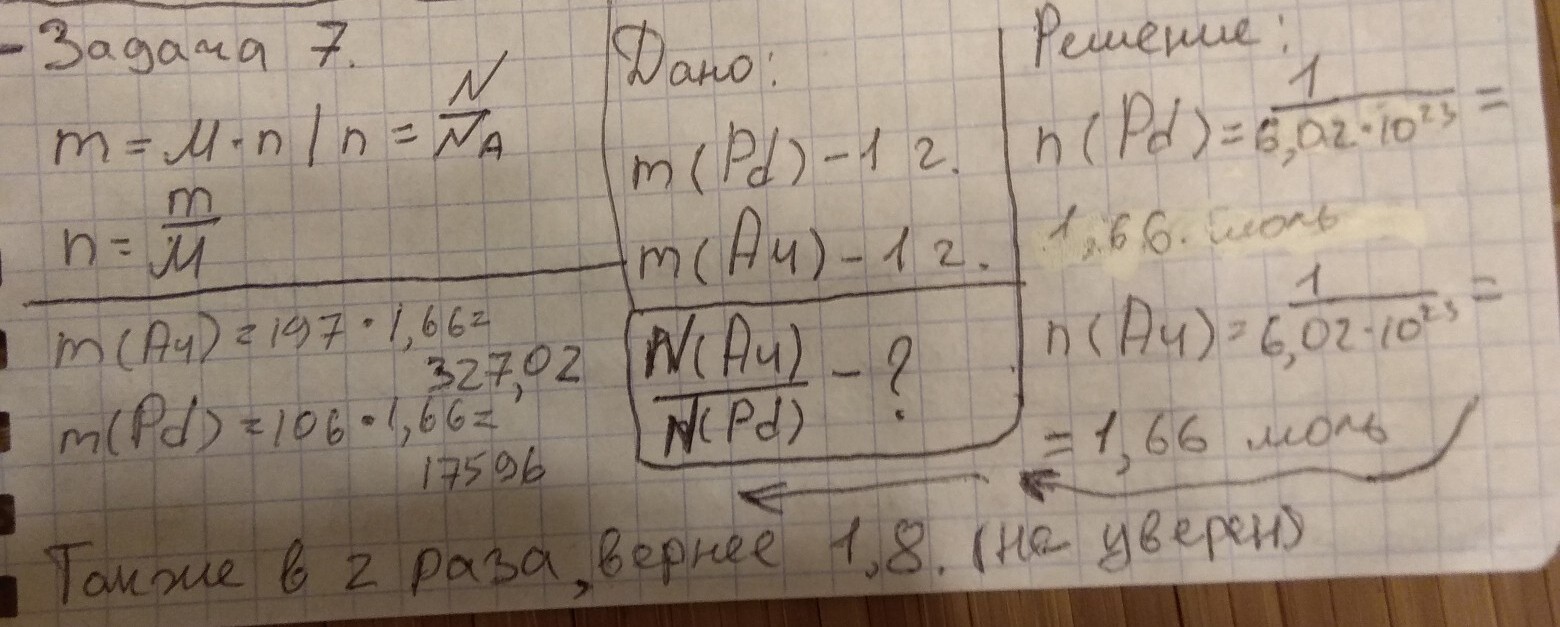 - Задача 7.
m = M · n / n = N/N_A
n = m/M
m(Au) = 197 · 1,66 =
327,02
m(Pd) = 106 · 1,66 =
17596
Дано:
m(Pd) – 1 г.
m(Au) – 1 г.
N(Au)/N(Pd) – ?
Решение:
n(Pd) = 1/6,02·10²³ =
1,66. моль
n(Au) = 1/6,02·10²³ =
= 1,66 моль
Также в 2 раза, вернее 1,8. (не уверен)